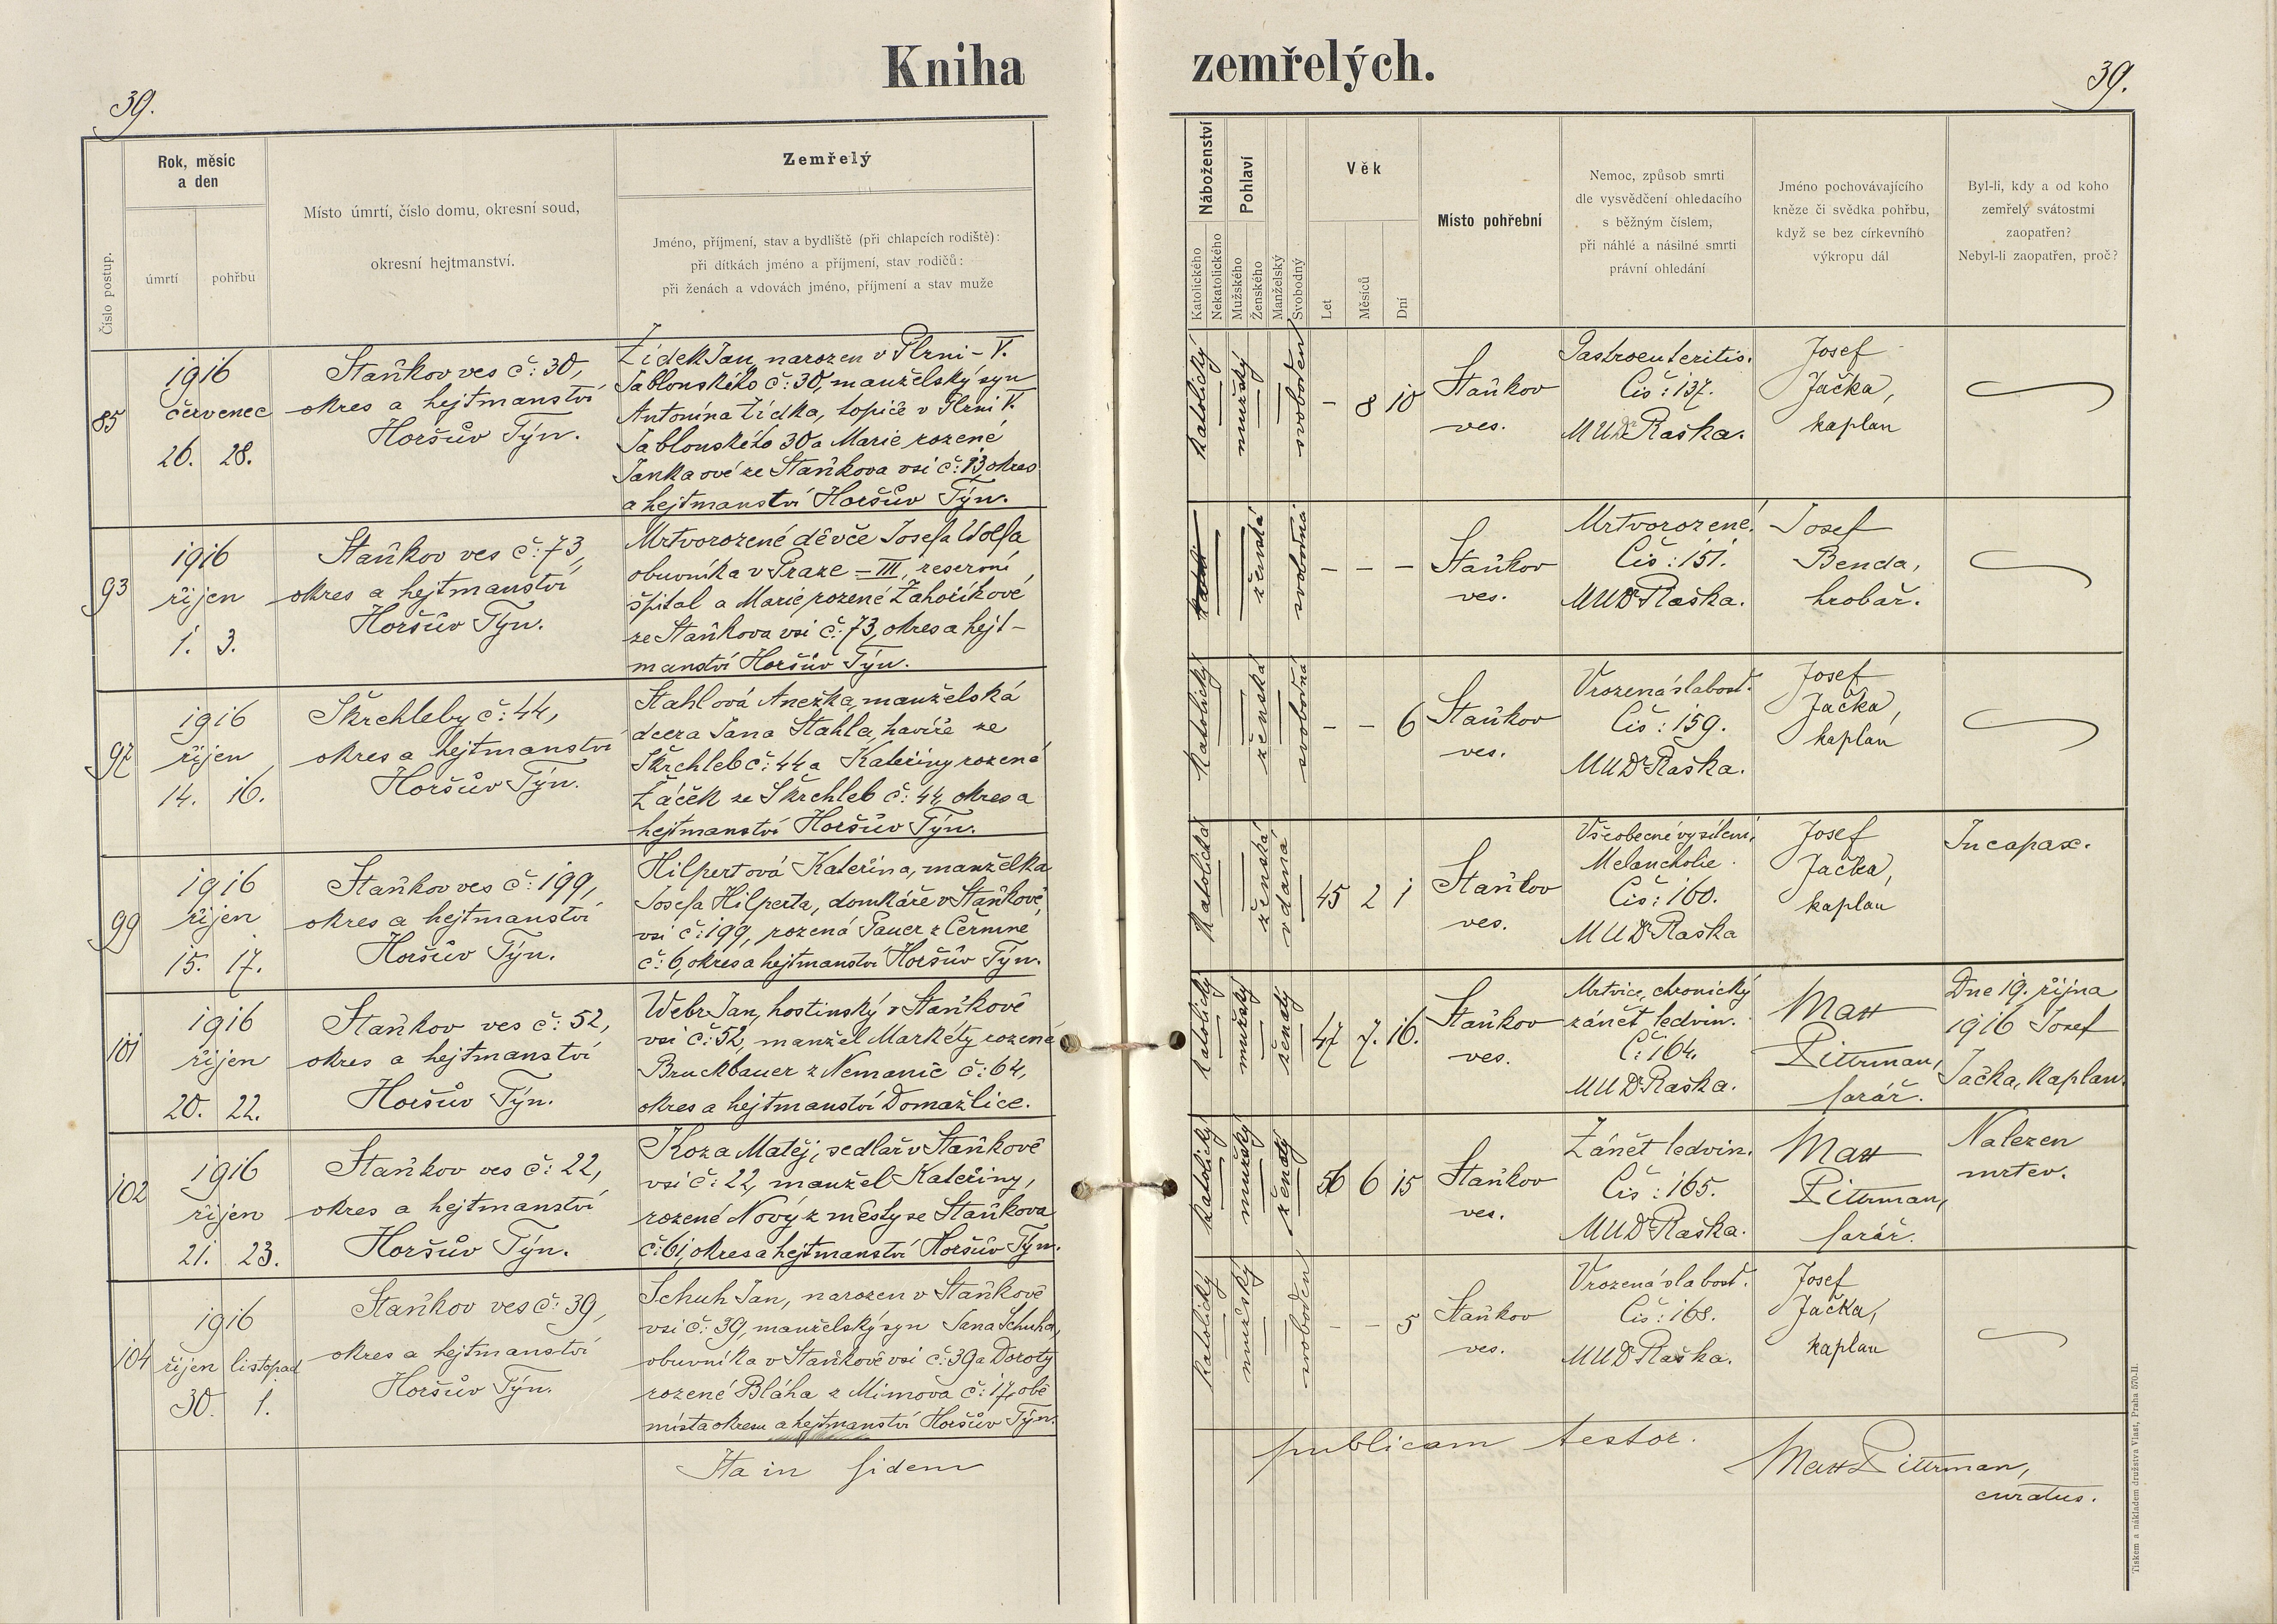 Kniha
zemřelých.
39.
39.
Číslo postup.
Rok, měsíc
a den
úmrtí
pohřbu
Místo úmrtí, číslo domu, okresní soud,
okresní hejtmanství.
Zemřelý
Jméno, příjmení, stav a bydliště (při chlapcích rodiště):
při dítkách jméno a příjmení, stav rodičů:
při ženách a vdovách jméno, příjmení a stav muže
Náboženství
Katolického
Nekatolického
Pohlaví
Mužského
Ženského
Manželský
Svobodný
Věk
Let
Měsíců
Dní
Místo pohřební
Nemoc, způsob smrti
dle vysvědčení ohledacího
s běžným číslem,
při náhlé a násilné smrti
právní ohledání
Jméno pochovávajícího
kněze či svědka pohřbu,
když se bez církevního
výkropu dál
Byl-li, kdy a od koho
zemřelý svátostmi
zaopatřen?
Nebyl-li zaopatřen, proč?
85
1916
červenec
26. 28.
Staňkov ves č: 30,
okres a hejtmanství
Horšův Týn.
Žídek Jan, narozen v Plzni – V.
Jablonského č: 30, manželský syn
Antonína Žídka, topiče v Plzni V.
Jablonského 30 a Marie rozené
Jankaové ze Staňkova vsi č: 13, okres
a hejtmanství Horšův Týn.
katolický
mužský
svoboden
– 8 10
Staňkov
ves.
Gastroenteritis.
Čís: 137.
MUDr Raška.
Josef
Jačka,
kaplan
93
1916
říjen
1. 3.
Staňkov ves č: 73,
okres a hejtmanství
Horšův Týn.
Mrtvorozené děvče Josefa Wolfa
obuvníka v Praze – III, reservní
špital a Marie rozené Zahoříkové
ze Staňkova vsi č: 73, okres a hejt–
manství Horšův Týn.
ženská
svobodná
– – –
Staňkov
ves.
Mrtvorozené.
Čís: 151.
MUDr Raška.
Josef
Benda,
hrobař.
97
1916
říjen
14. 16.
Škrchleby č: 44,
okres a hejtmanství
Horšův Týn.
Stahlová Anežka, manželská
dcera Jana Stahla, havíře ze
Škrchleb č: 44 a Kateřiny rozené
Žáček ze Škrchleb č: 44, okres a
hejtmanství Horšův Týn.
katolický
ženská
svobodná
– – 6
Staňkov
ves.
Vrozená slabost.
Čís: 159.
MUDr Raška.
Josef
Jačka,
kaplan
99
1916
říjen
15. 17.
Staňkov ves č: 199,
okres a hejtmanství
Horšův Týn.
Hilpertová Kateřina, manželka
Josefa Hilperta, domkáře v Staňkově,
vsi č: 199, rozená Pauer z Čermné
č: 6, okres a hejtmanství Horšův Týn.
katolická
ženská
vdaná
45 2 1
Staňkov
ves.
Všeobecné vysílení,
Melancholie.
Čís: 160.
MUDr Raška
Josef
Jačka,
kaplan
Incapax.
101
1916
říjen
20. 22.
Staňkov ves č: 52,
okres a hejtmanství
Horšův Týn.
Webr Jan, hostinský v Staňkově
vsi č: 52, manžel Markéty rozené
Bruckbauer z Nemanic č: 64,
okres a hejtmanství Domažlice.
katolický
mužský
ženatý
47 7. 16.
Staňkov
ves.
Mrtvice, chronický
zánět ledvin.
Č: 164.
MUDr Raška.
Matt
Pittrman,
farář.
Dne 19. října
1916 Josef
Jačka, kaplan.
102
1916
říjen
21. 23.
Staňkov ves č: 22,
okres a hejtmanství
Horšův Týn.
Koza Matěj, sedlář v Staňkově
vsi č: 22, manžel Kateřiny,
rozené Nový z městyse Staňkova
č: 61, okres a hejtmanství Horšův Týn.
katolický
mužský
ženatý
56 6 15
Staňkov
ves.
Zánět ledvin.
Čís: 165.
MUDr Raška.
Matt
Pittrman,
farář.
Nalezen
mrtev.
104
1916
říjen listopad
30. 1.
Staňkov ves č: 39,
okres a hejtmanství
Horšův Týn.
Schuh Jan, narozen v Staňkově
vsi č: 39, manželský syn Jana Schuha,
obuvníka v Staňkově vsi č: 39 a Doroty
rozené Bláha z Mimova č: 17, obě
místa okresu a hejtmanství Horšův Týn.
katolický
mužský
svoboden
– – 5
Staňkov
ves.
Vrozená slabost.
Čís: 168.
MUDr Raška.
Josef
Jačka,
kaplan
Ita in fidem
publicam testor.
Matt Pittrman,
curatus.
Tiskem a nákladem družstva Vlast, Praha 570-II.